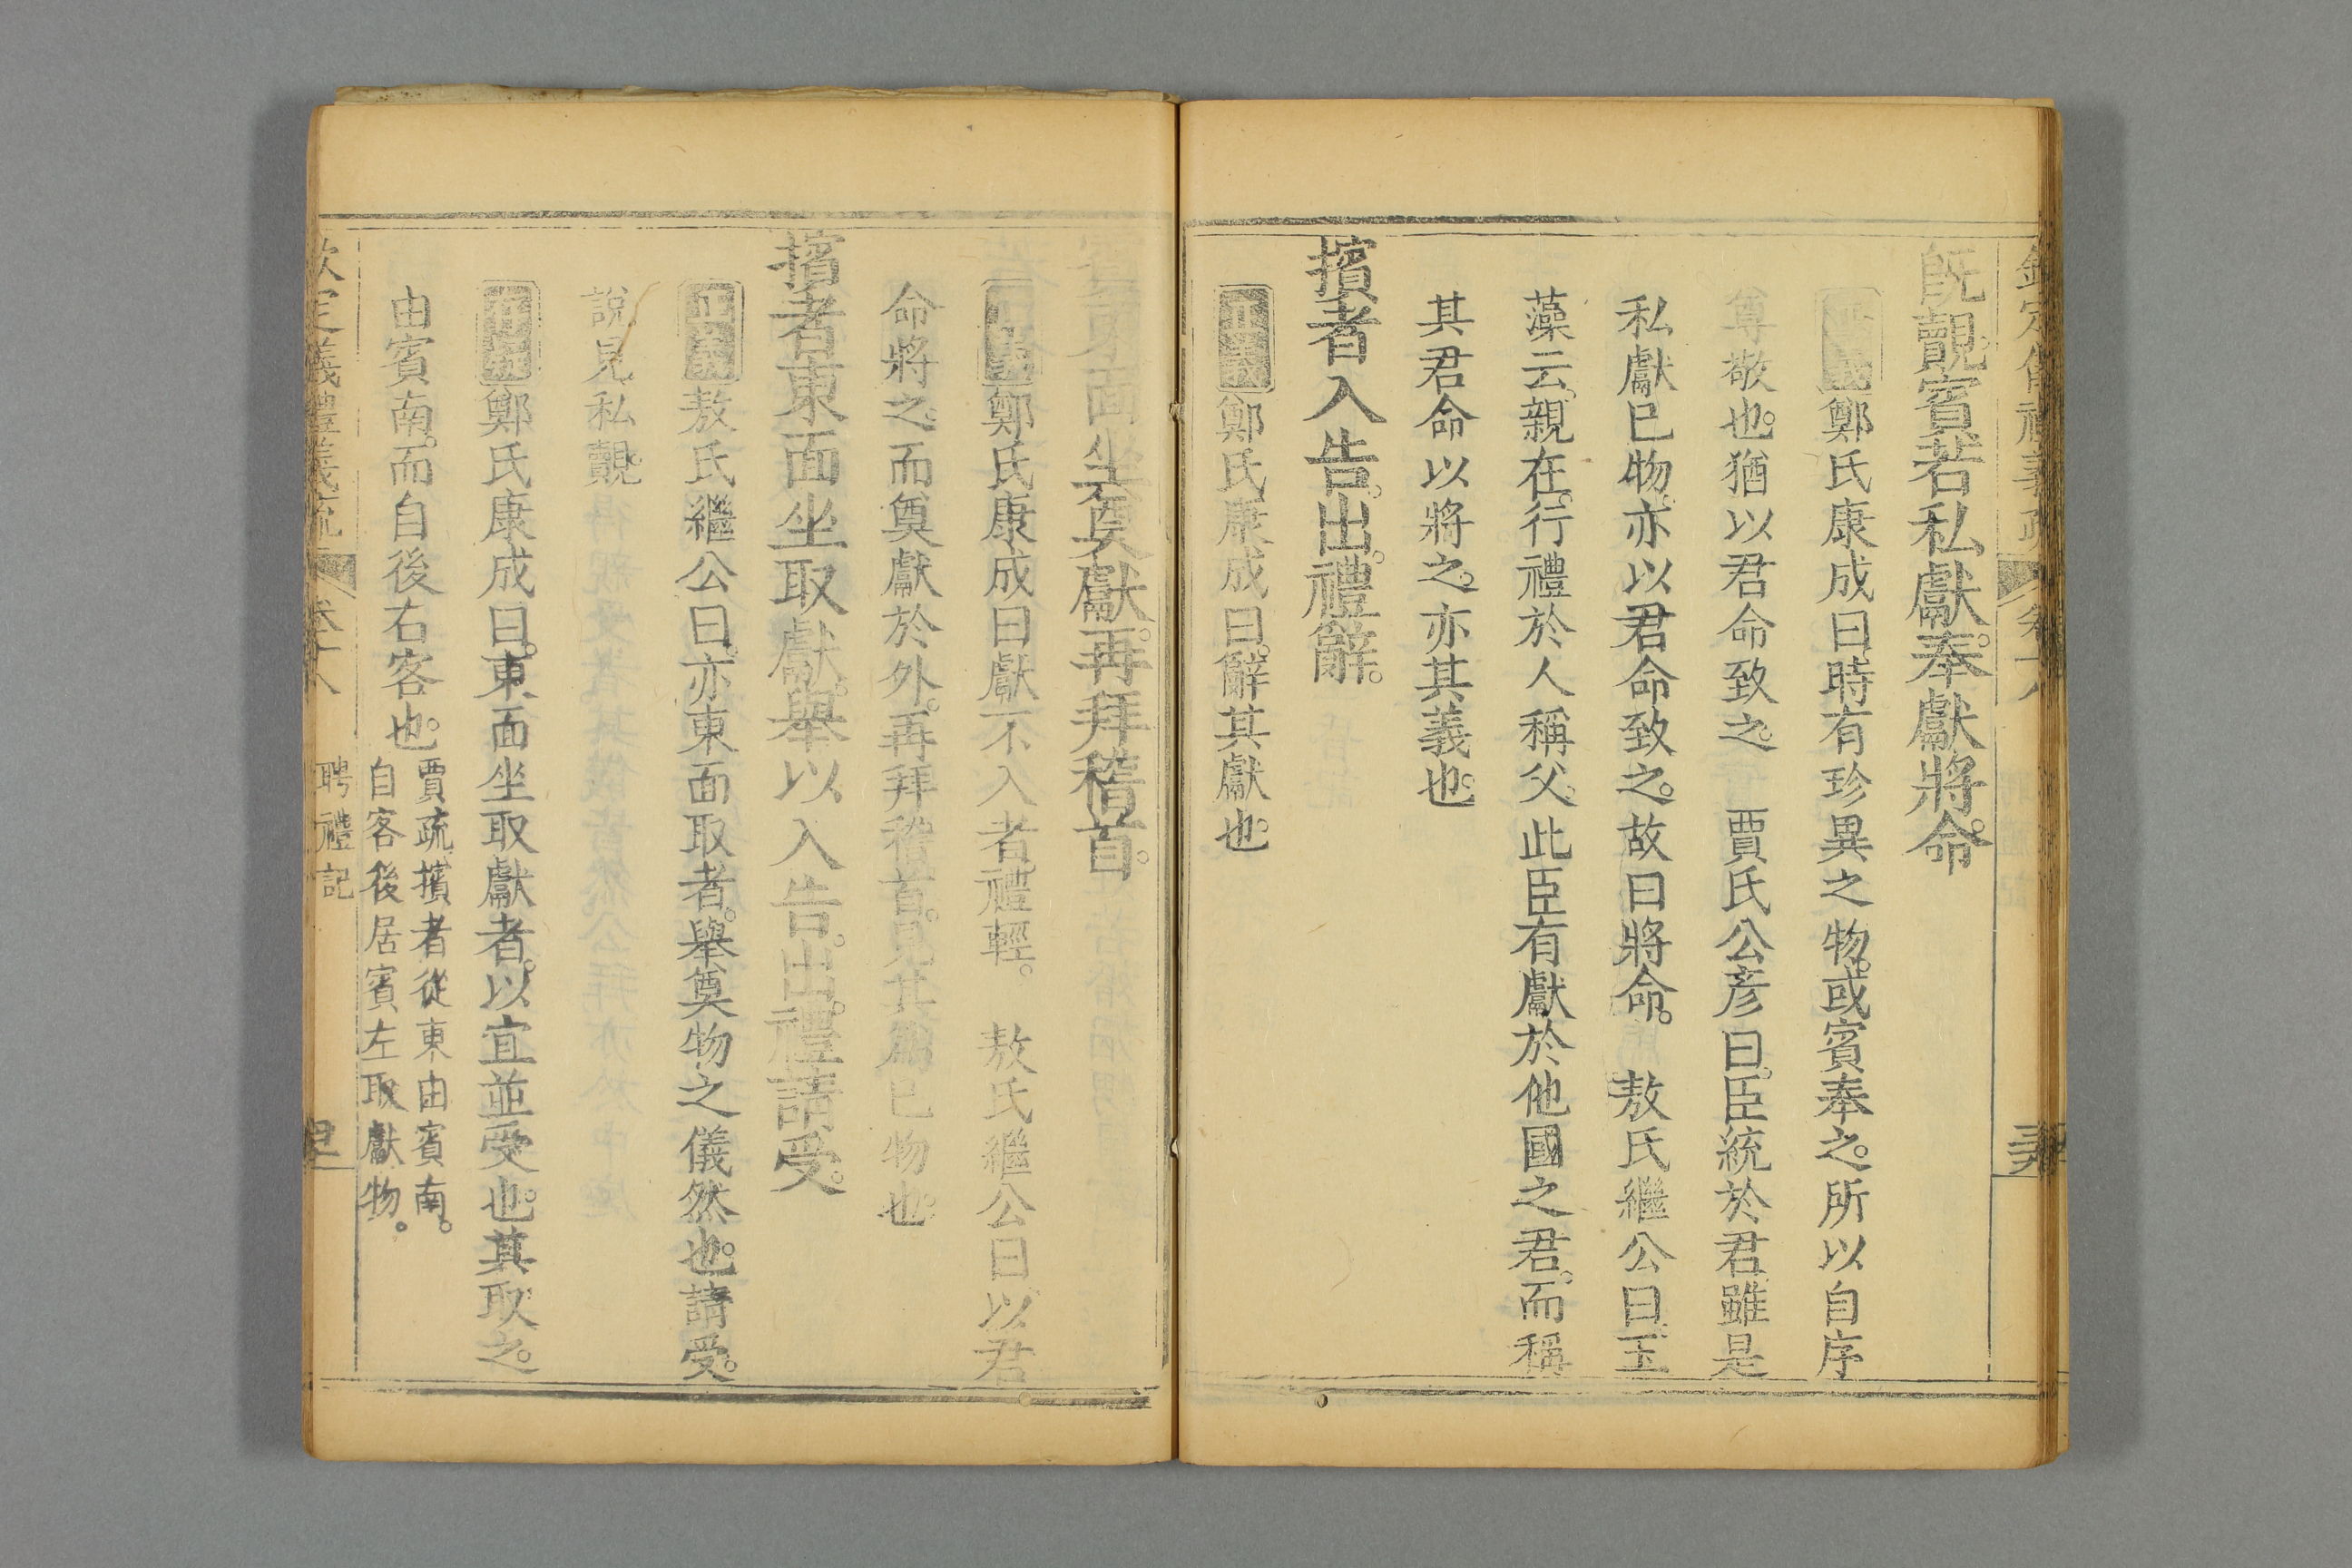 既覿賓若私獻奉獻將命。
正義鄭氏康成曰時有珍異之物。或賓奉之。所以自序
尊敬也。猶以君命致之。賈氏公彥曰。臣統於君雖是
私獻已物。亦以君命致之。故曰將命。敖氏繼公曰玉
藻云。親在。行禮於人稱父。此臣有獻於他國之君。而稱
其君命以將之。亦其義也。
擯者入告。出。禮辭。
正義鄭氏康成曰。辭其獻也。
賓東面坐奠獻。再拜稽首。
正義鄭氏康成曰獻不入者。禮輕。敖氏繼公曰以君
命將之。而奠獻於外。再拜稽首。見其為已物也。
擯者東面坐取獻。舉以入告。出。禮請受。
正義敖氏繼公曰。亦東面取者。舉奠物之儀然也。請受。
說見私覿。
正義鄭氏康成曰。東面坐取獻者。以宜並受也。其取之。
由賓南。而自後右客也。
賈疏擯者從東由賓南。
自客後居賓左取獻物。
欽定儀禮義疏 卷十八 聘禮記